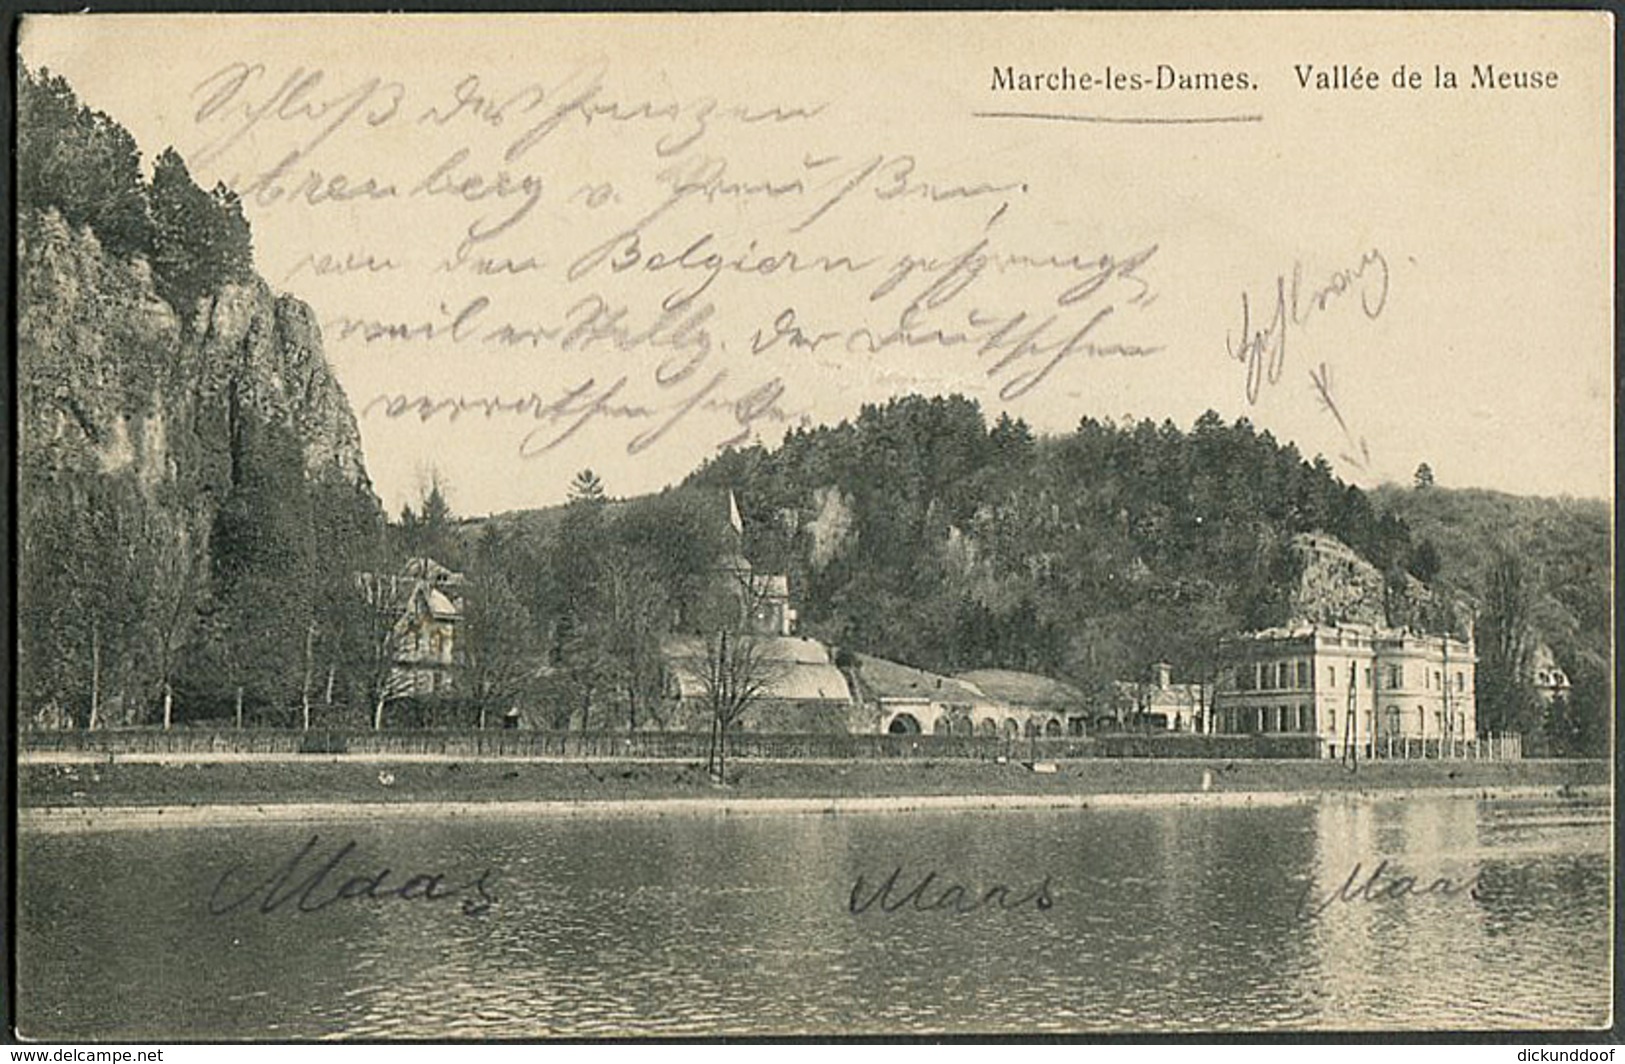 Marche-les-Dames. Vallée de la Meuse
Schloß des Prinzen
Arenberg v. Preußen,
von den Belgiern gesprengt,
weil er Stellg. der Deutschen
verrathen hatte.
Maas Maas Maas
www.delcampe.net
dickunddoof